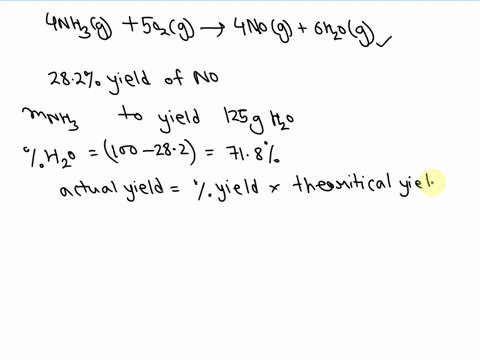 4NH₃(g) + 5O₂(g) → 4NO(g) + 6H₂O(g) ✓
28.2% yield of NO
mNH₃ to yield 125g H₂O
% H₂O = (100-28.2) = 71.8%
actual yield = % yield × theoritical yiel